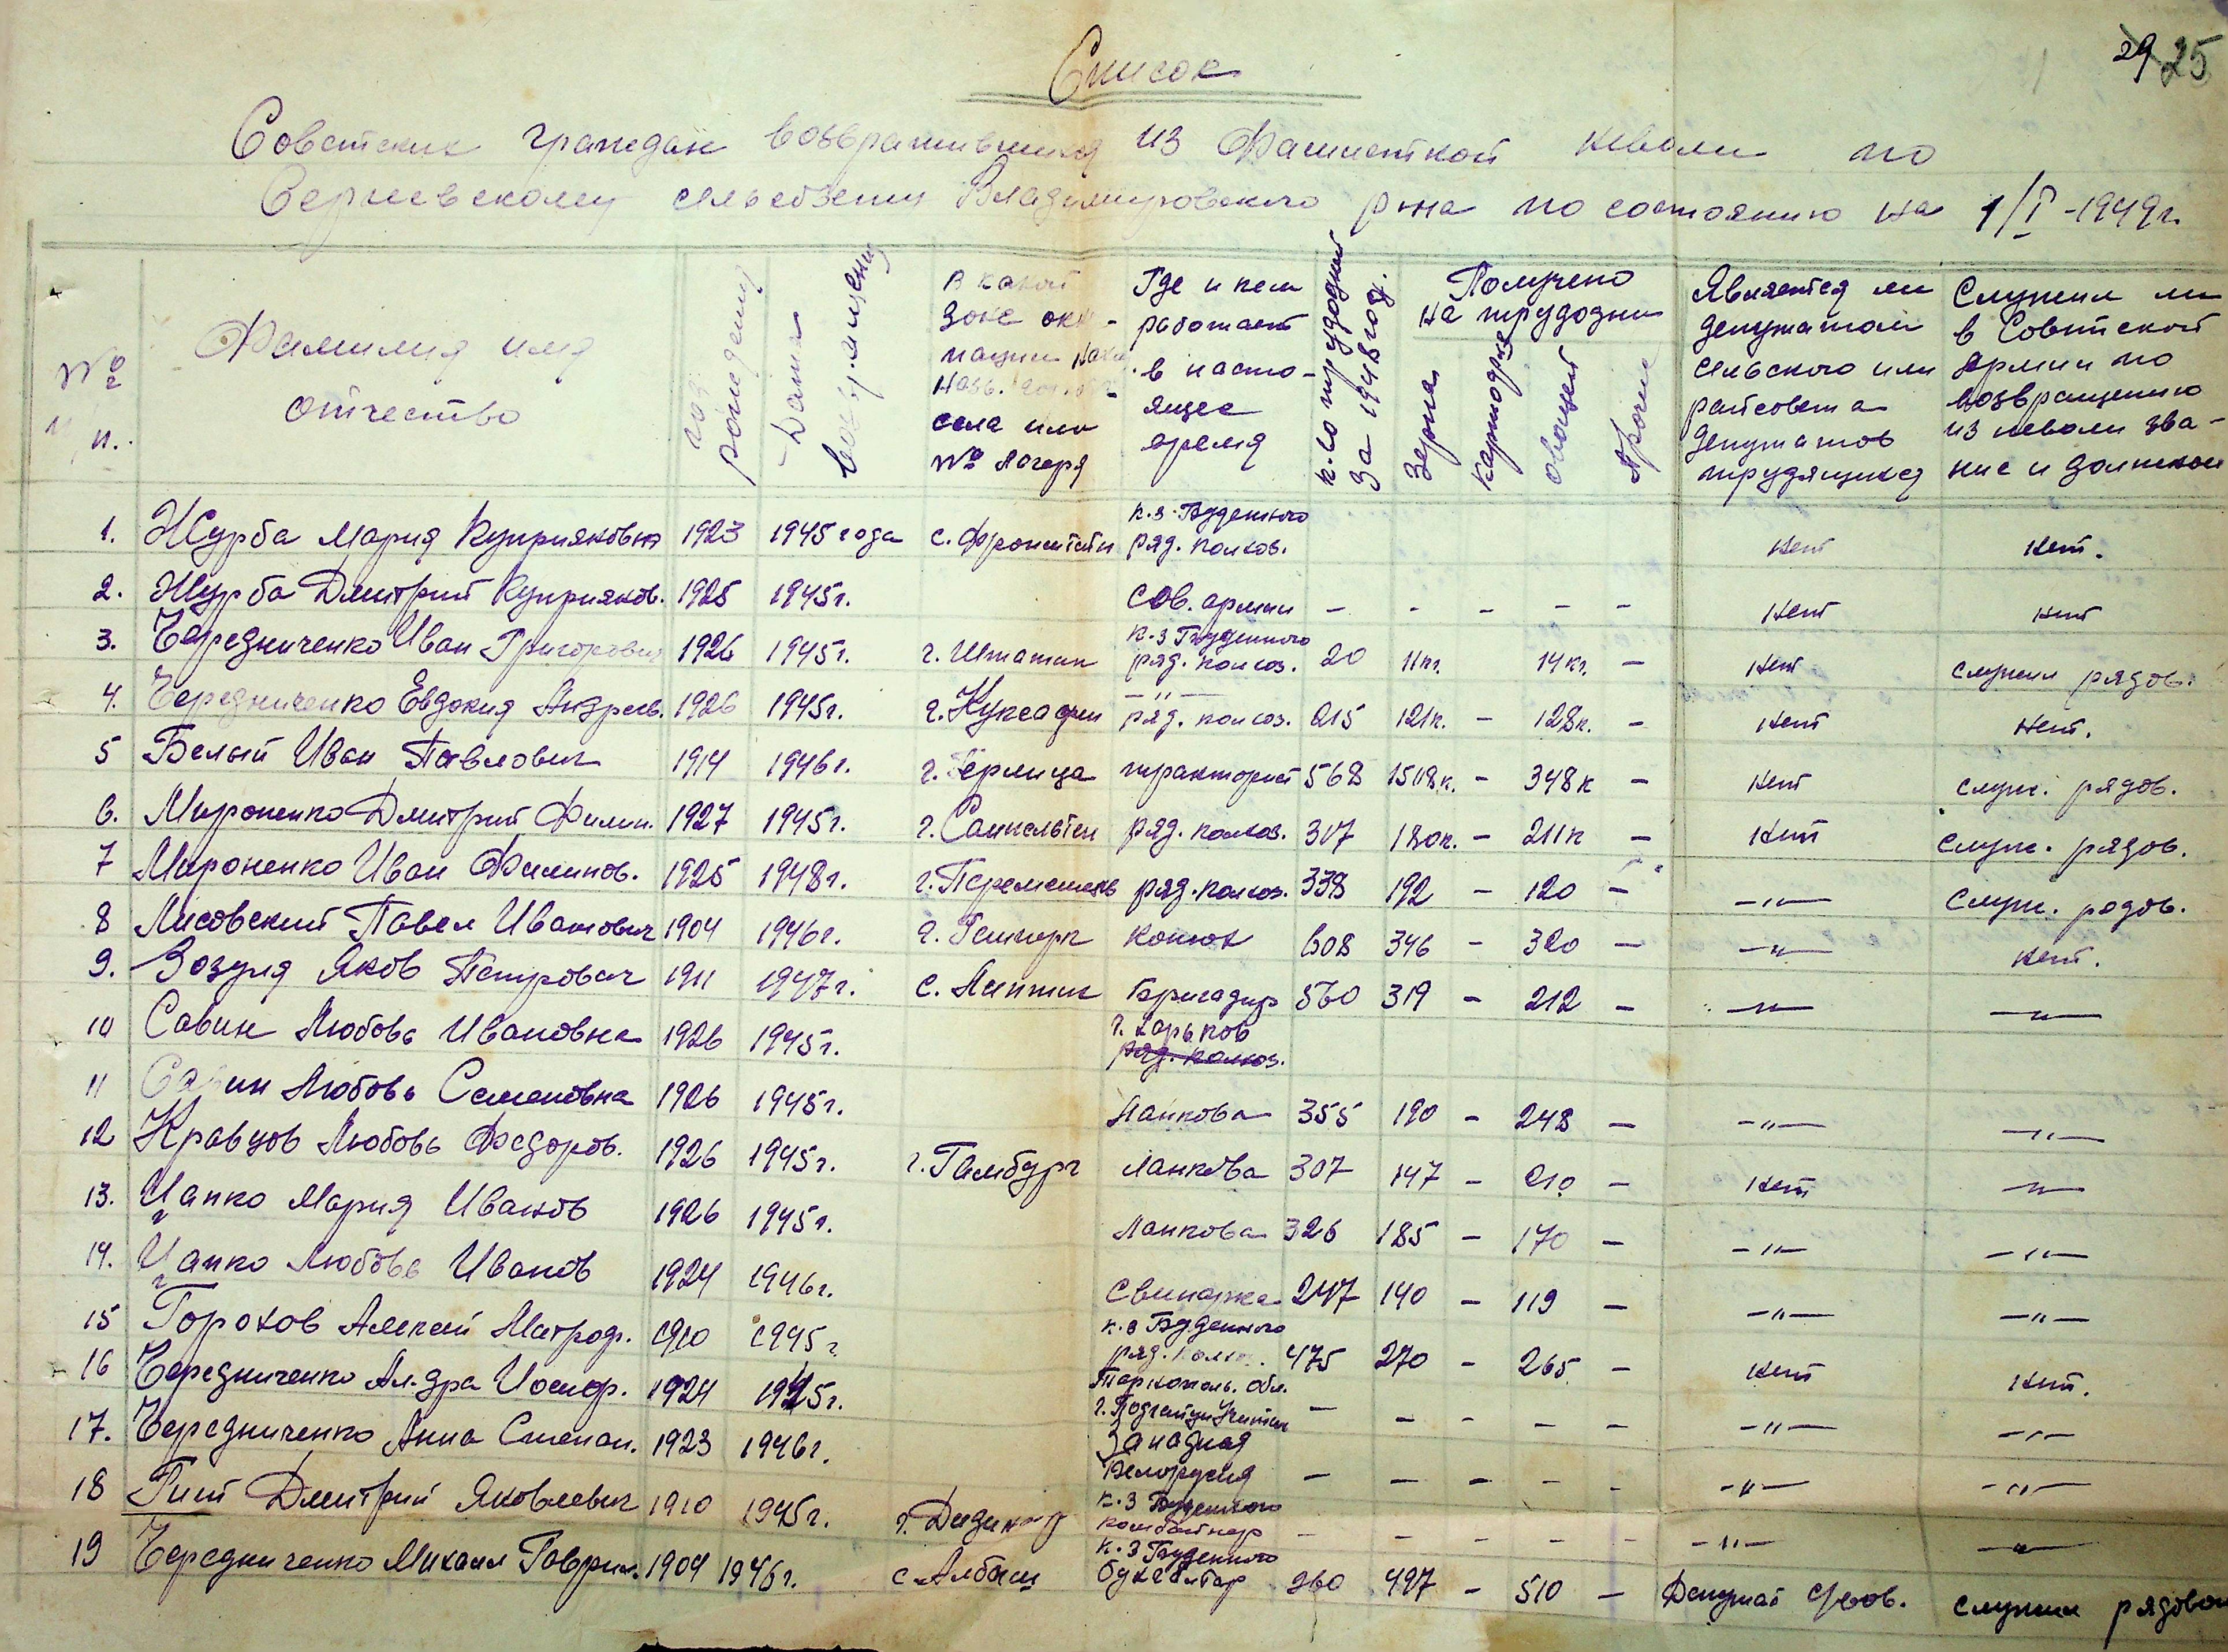 29 25
Список
Советских граждан возвратившихся из Фашисткой неволи по
Сергиевскому сельсовету Владимировского р-на по состоянию на 1/I-1949г.
№ п. Фамилия имя отчество
год рождения
Дата возвращения
в какой зоне окк-пации
села или № лагеря
Где и кем работает в насто-ящее время
к-со трудодней за 1948 год.
Получено на трудодни
Зерна Картофеля Овощей Прочие
Является ли депутатом сельского или райсовета депутатов трудящихся
Служил ли в Советской Армии по возвращению из неволи зва-ние и должност
1. Журба Мария Куприяковна 1923 1945 года с. Фронштатн к.з Буденного ряд. колхоз. нет нет.
2. Журба Дмитрий Куприяков. 1925 1945г. Сов. армии - - - - - нет нет
3. Чередниченко Иван Григорович 1926 1945г. г. Штатин к.з Буденного ряд. колхоз. 20 11кг. 14кг. - нет служил рядов.
4. Чередниченко Евдокия Андреев. 1926 1945г. г. Куксафен —"— ряд. колхоз. 215 121к. - 128к. - нет нет.
5 Белый Иван Павлович 1914 1946г. г. Герлица тракторист 568 1508к. - 348к - нет служ. рядов.
6. Мироненко Дмитрий Филип. 1927 1945г. ряд. колхоз. 307 180к. - 211к - нет служ. рядов.
7 Мироненко Иван Филипов. 1925 1948г. ряд. колхоз. 338 192 - 120 - —"— служ. рядов.
8 Лисовский Павел Иванович 1904 1946г. Конюх 608 346 - 320 - —"— нет.
9. Зозуля Яков Петрович 1911 1947г. с. Липтик Бригадир 560 319 - 212 - —"— —"—
10 Савин Любовь Ивановна 1926 1945г. г. Харьков ряд. колхоз.
11 Савин Любовь Семеновна 1926 1945г. Ланкова 355 190 - 248 - —"— —"—
12 Кравцов Любовь Федоров. 1926 1945г. г. Гамбург Ланкова 307 147 - 210 - нет —"—
13. Цапко Мария Иванов 1926 1945г. Ланкова 326 185 - 170 - —"— —"—
14. Цапко Любовь Иванов 1924 1946г. Свинарка 247 140 - 119 - —"— —"—
15 Горохов Алексей Матроф. 1910 1945г. к.з Буденного ряд. колхоз. 475 270 - 265 - нет нет.
16 Чередниченко Ал-дра Иосиф. 1924 1945г. Тарнополь. обл. г. Подгайцы Учител - - - - - —"— —"—
17. Чередниченко Анна Степан. 1923 1946г. Западная Белоруссия - - - - - —"— —"—
18 Гист Дмитрий Яковлевич 1910 1945г. к.з Буденного комбайнер - - - - - —"— —"—
19 Чередниченко Михаил Гаврил. 1904 1946г. к.з Буденного бухгалтар 260 497 - 510 - Депутат с/сов. служил рядовой